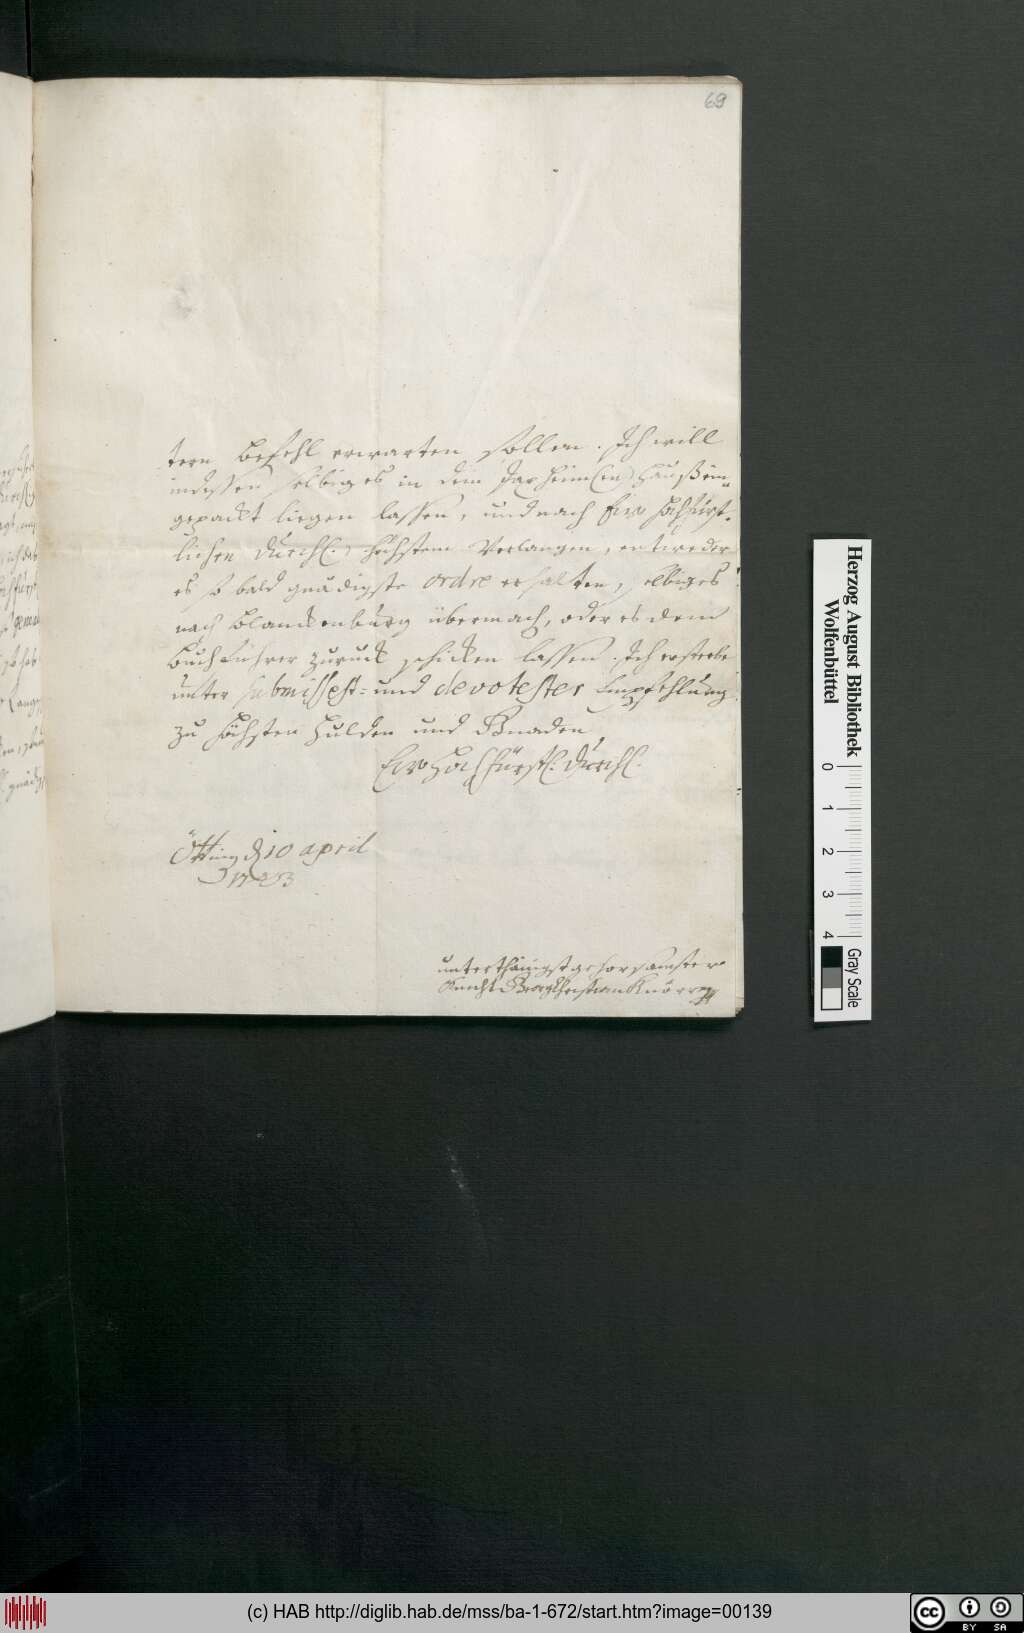 69
tern befehl erwarten sollen. Ich will
indessen selbiges in dem Hauß ein-
gepackt liegen lassen, und nach Eur Hochfürst-
lichen Durchl. höchstem Verlangen, entweder
es so bald gnädigste ordre erhalten, selbiges
nach Blanckenburg übermach, oder es dem
Buchführer zuruck schicken lassen. Ich ersterbe
unter submissest- und devotester Empfehlung
zu höchsten Hulden und Gnaden
Eur Hochfürstl. Durchl.
Ötting d 10 april
1723
unterthänigst gehorsamster
Knecht Georg Christian Knörr
Herzog August Bibliothek
Wolfenbüttel
0 1 2 3 4
Gray Scale
(c) HAB http://diglib.hab.de/mss/ba-1-672/start.htm?image=00139
cc BY SA